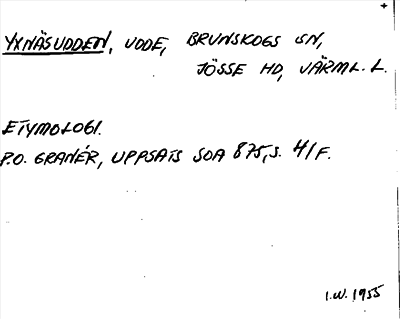 YXNÄSUDDEN, UDDE, BRUNSKOGS SN,
JÖSSE HD, VÄRML. L.
ETYMOLOGI.
P.O. GRANÉR, UPPSATS SOA 875, S. 41 F.
I.W. 1955